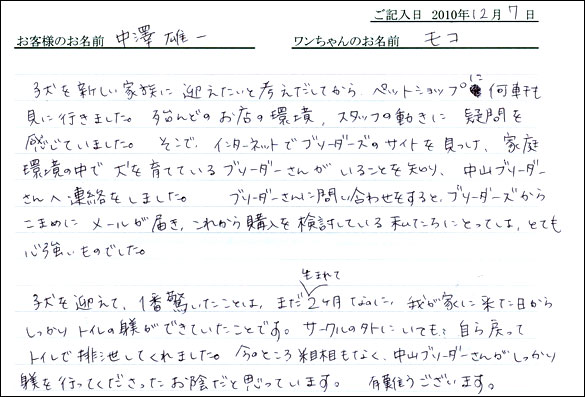 ご記入日 2010年12月7日
お客様のお名前 中澤 雄一 ワンちゃんのお名前 モコ
子犬を新しい家族に迎えたいと考えだしてから、ペットショップに何軒も
見に行きました。殆んどのお店の環境、スタッフの動きに疑問を
感じていました。そこで、インターネットでブリーダーズのサイトを見つけ、家庭
環境の中で犬を育てているブリーダーさんがいることを知り、中山ブリーダー
さんへ連絡をしました。ブリーダーさんに問い合わせをすると、ブリーダーズから
こまめにメールが届き、これから購入を検討している私たちにとっては、とても
心強いものでした。
生まれて
子犬を迎えて、1番驚いたことは、まだ2ヶ月なのに、我が家に来た日から
しっかりトイレの躾ができていたことです。サークルの外にいても、自ら戻って
トイレで排泄してくれました。今のところ粗相もなく、中山ブリーダーさんがしっかり
躾を行ってくださったお陰だと思っています。有難うございます。